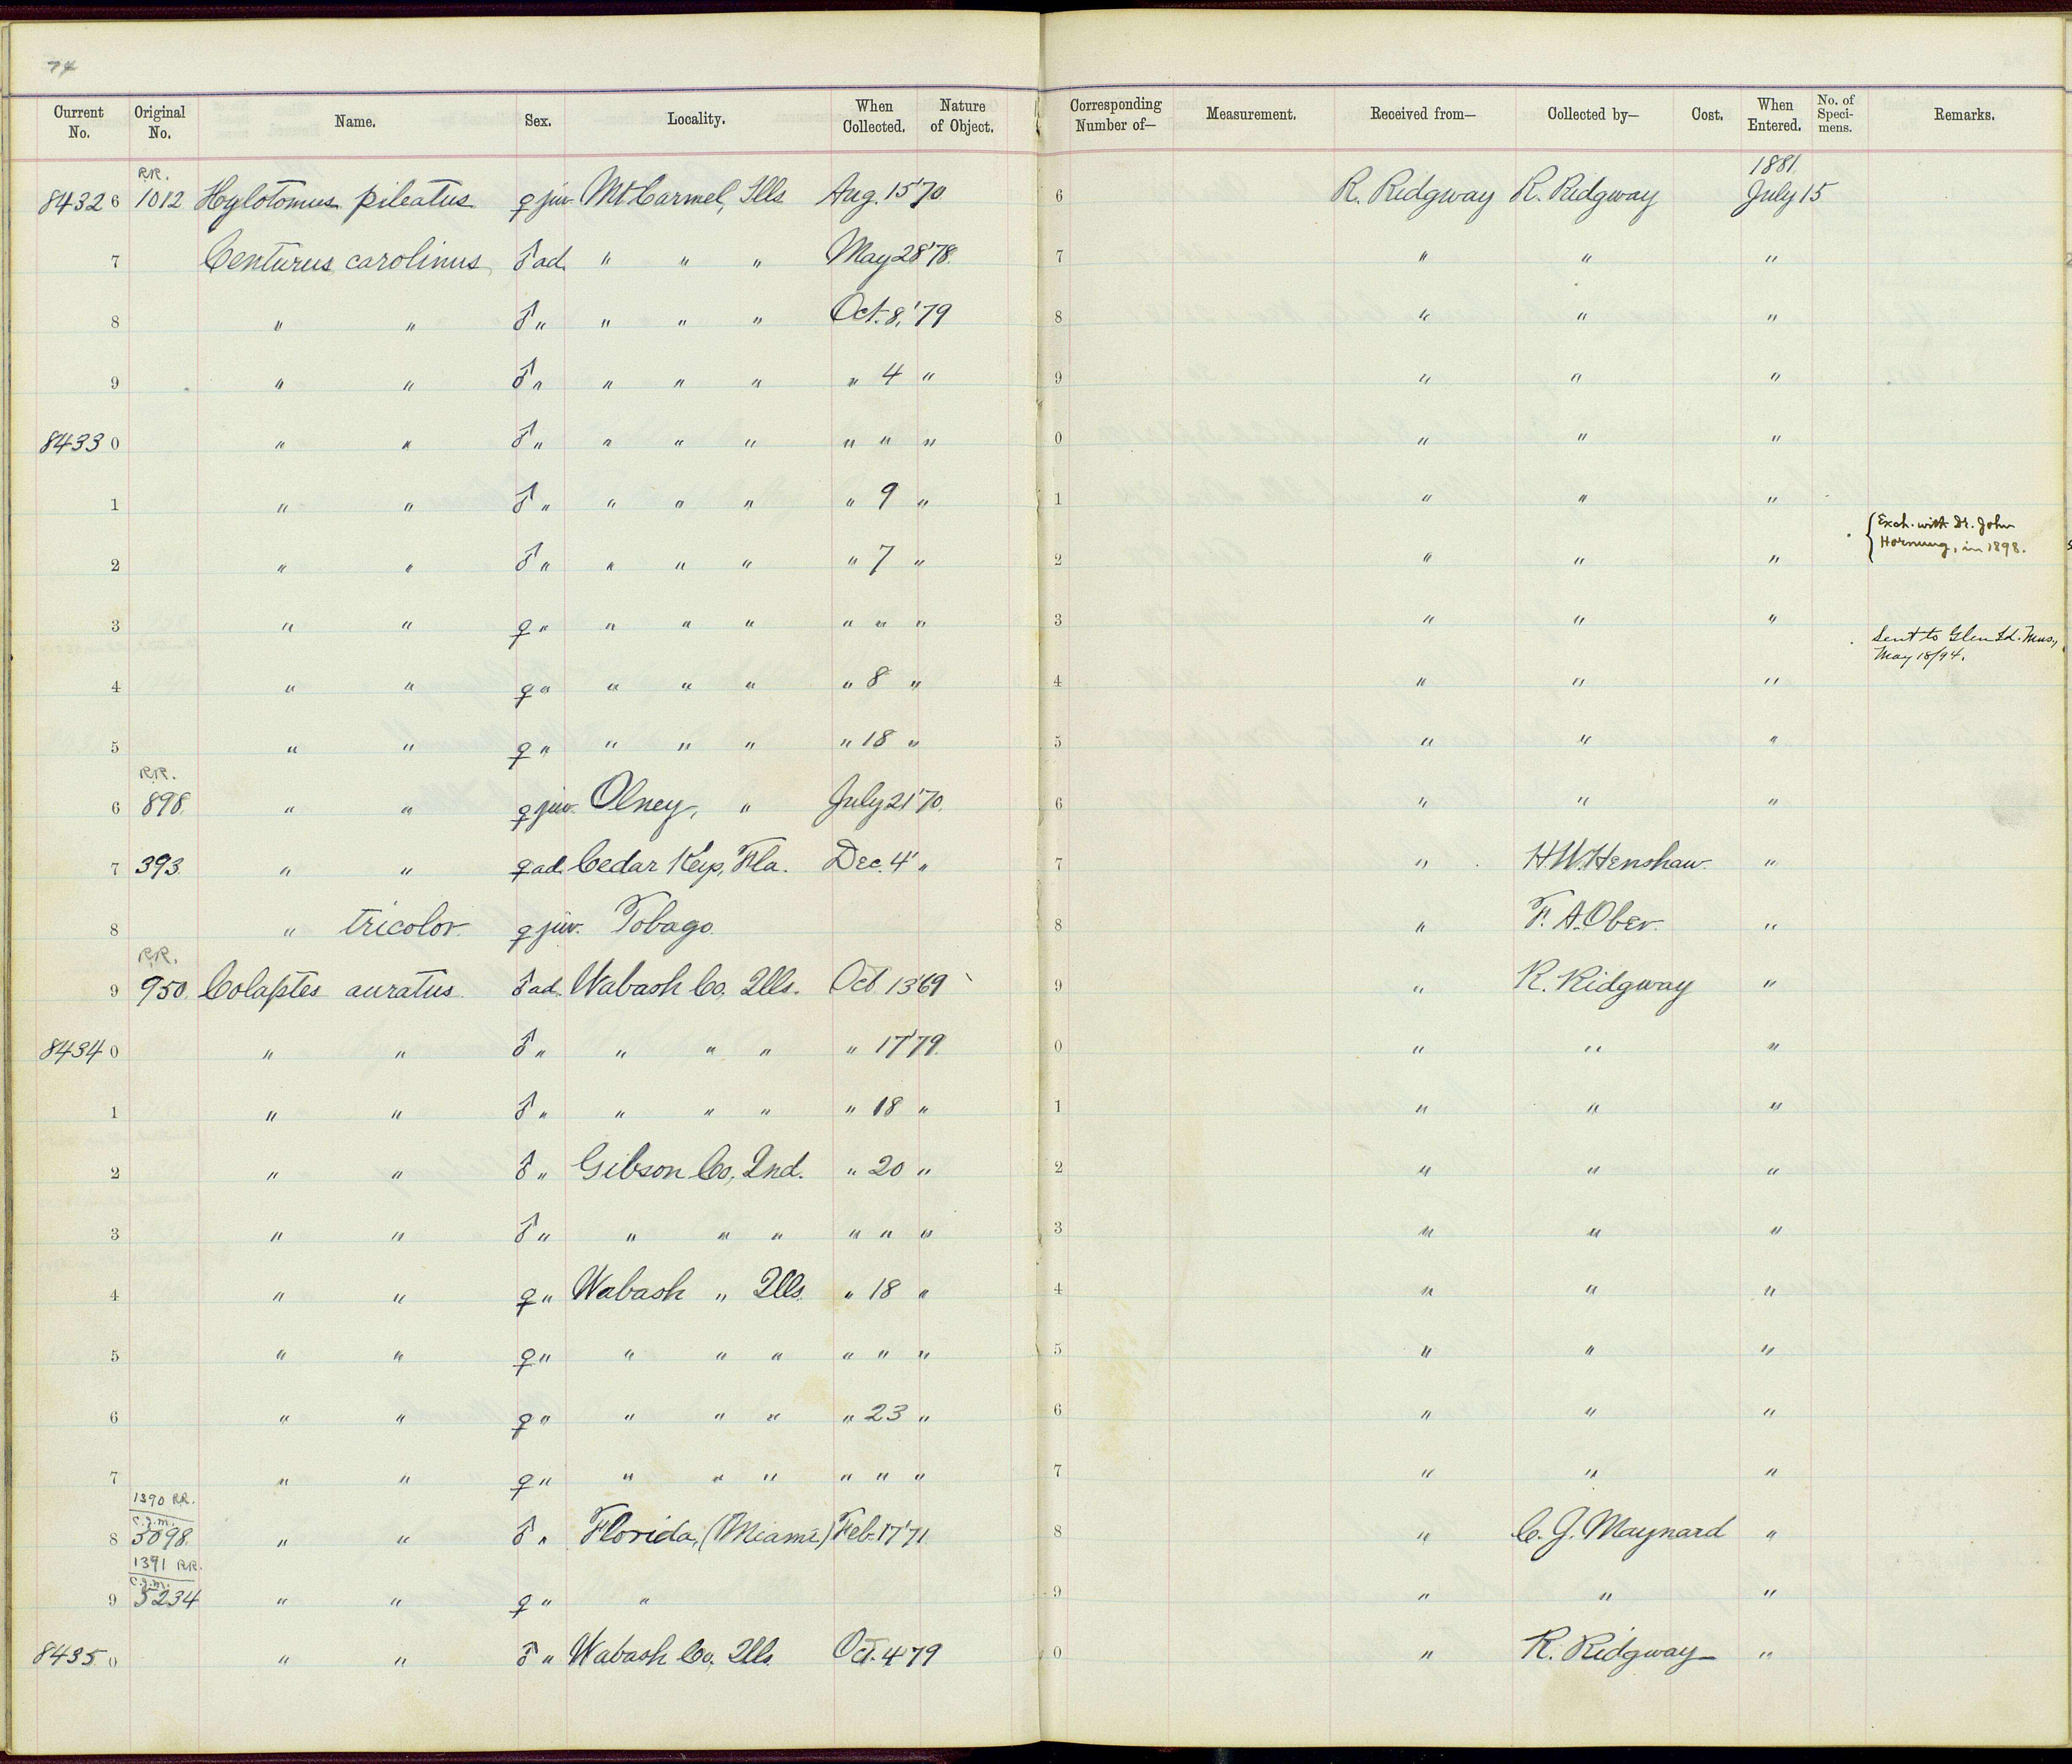 74
Current No. Original No. Name. Sex. Locality. When Collected. Nature of Object. Corresponding Number of— Measurement. Received from— Collected by— Cost. When Entered. No. of Specimens. Remarks.
R.R. 1881.
8432 6 1012 Hylotomus pileatus ♀ juv. Mt Carmel, Ills Aug. 15'70 6 R. Ridgway R. Ridgway July 15
7 Centurus carolinus ♂ ad. " " " May 28'78. 7 " " "
8 " " ♂ " " " " Oct. 8,'79 8 " " "
9 " " ♂ " " " " " 4 " 9 " " "
8433 0 " " ♂ " " " " " " " 0 " " "
1 " " ♂ " " " " " 9 " 1 " " "
2 " " ♂ " " " " " 7 " 2 " " " { Exch. with Dr. John
Hornung, in 1898.
3 " " ♀ " " " " " " " 3 " " "
Sent to Glen Id. Mus.,
May 18/94.
4 " " ♀ " " " " " 8 " 4 " " "
5 " " ♀ " " " " " 18 " 5 " " "
R.R.
6 898. " " ♀ juv. Olney, " July 21'70. 6 " " "
7 393. " " ♀ ad. Cedar Keys, Fla. Dec. 4' " 7 " H.W. Henshaw "
8 " tricolor ♀ juv. Tobago. 8 " F. A. Ober. "
R.R.
9 950. Colaptes auratus. ♂ ad. Wabash Co, Ills. Oct 13'69 9 " R. Ridgway "
8434 0 " " ♂ " " " " " 17'79. 0 " " "
1 " " ♂ " " " " " 18 " 1 " " "
2 " " ♂ " Gibson Co, Ind. " 20 " 2 " " "
3 " " ♂ " " " " " " " 3 " " "
4 " " ♀ " Wabash " Ills. " 18 " 4 " " "
5 " " ♀ " " " " " " " 5 " " "
6 " " ♀ " " " " " 23 " 6 " " "
7 " " ♀ " " " " " " " 7 " " "
1390 R.R.
C.J.M.
8 5098. " " ♂ " Florida, (Miami) Feb. 17'71. 8 " C. J. Maynard "
1391 R.R.
C.J.M.
9 5234 " " ♀ " " 9 " " "
8435 0 " " ♂ " Wabash Co. Ills. Oct. 4'79 0 " R. Ridgway "